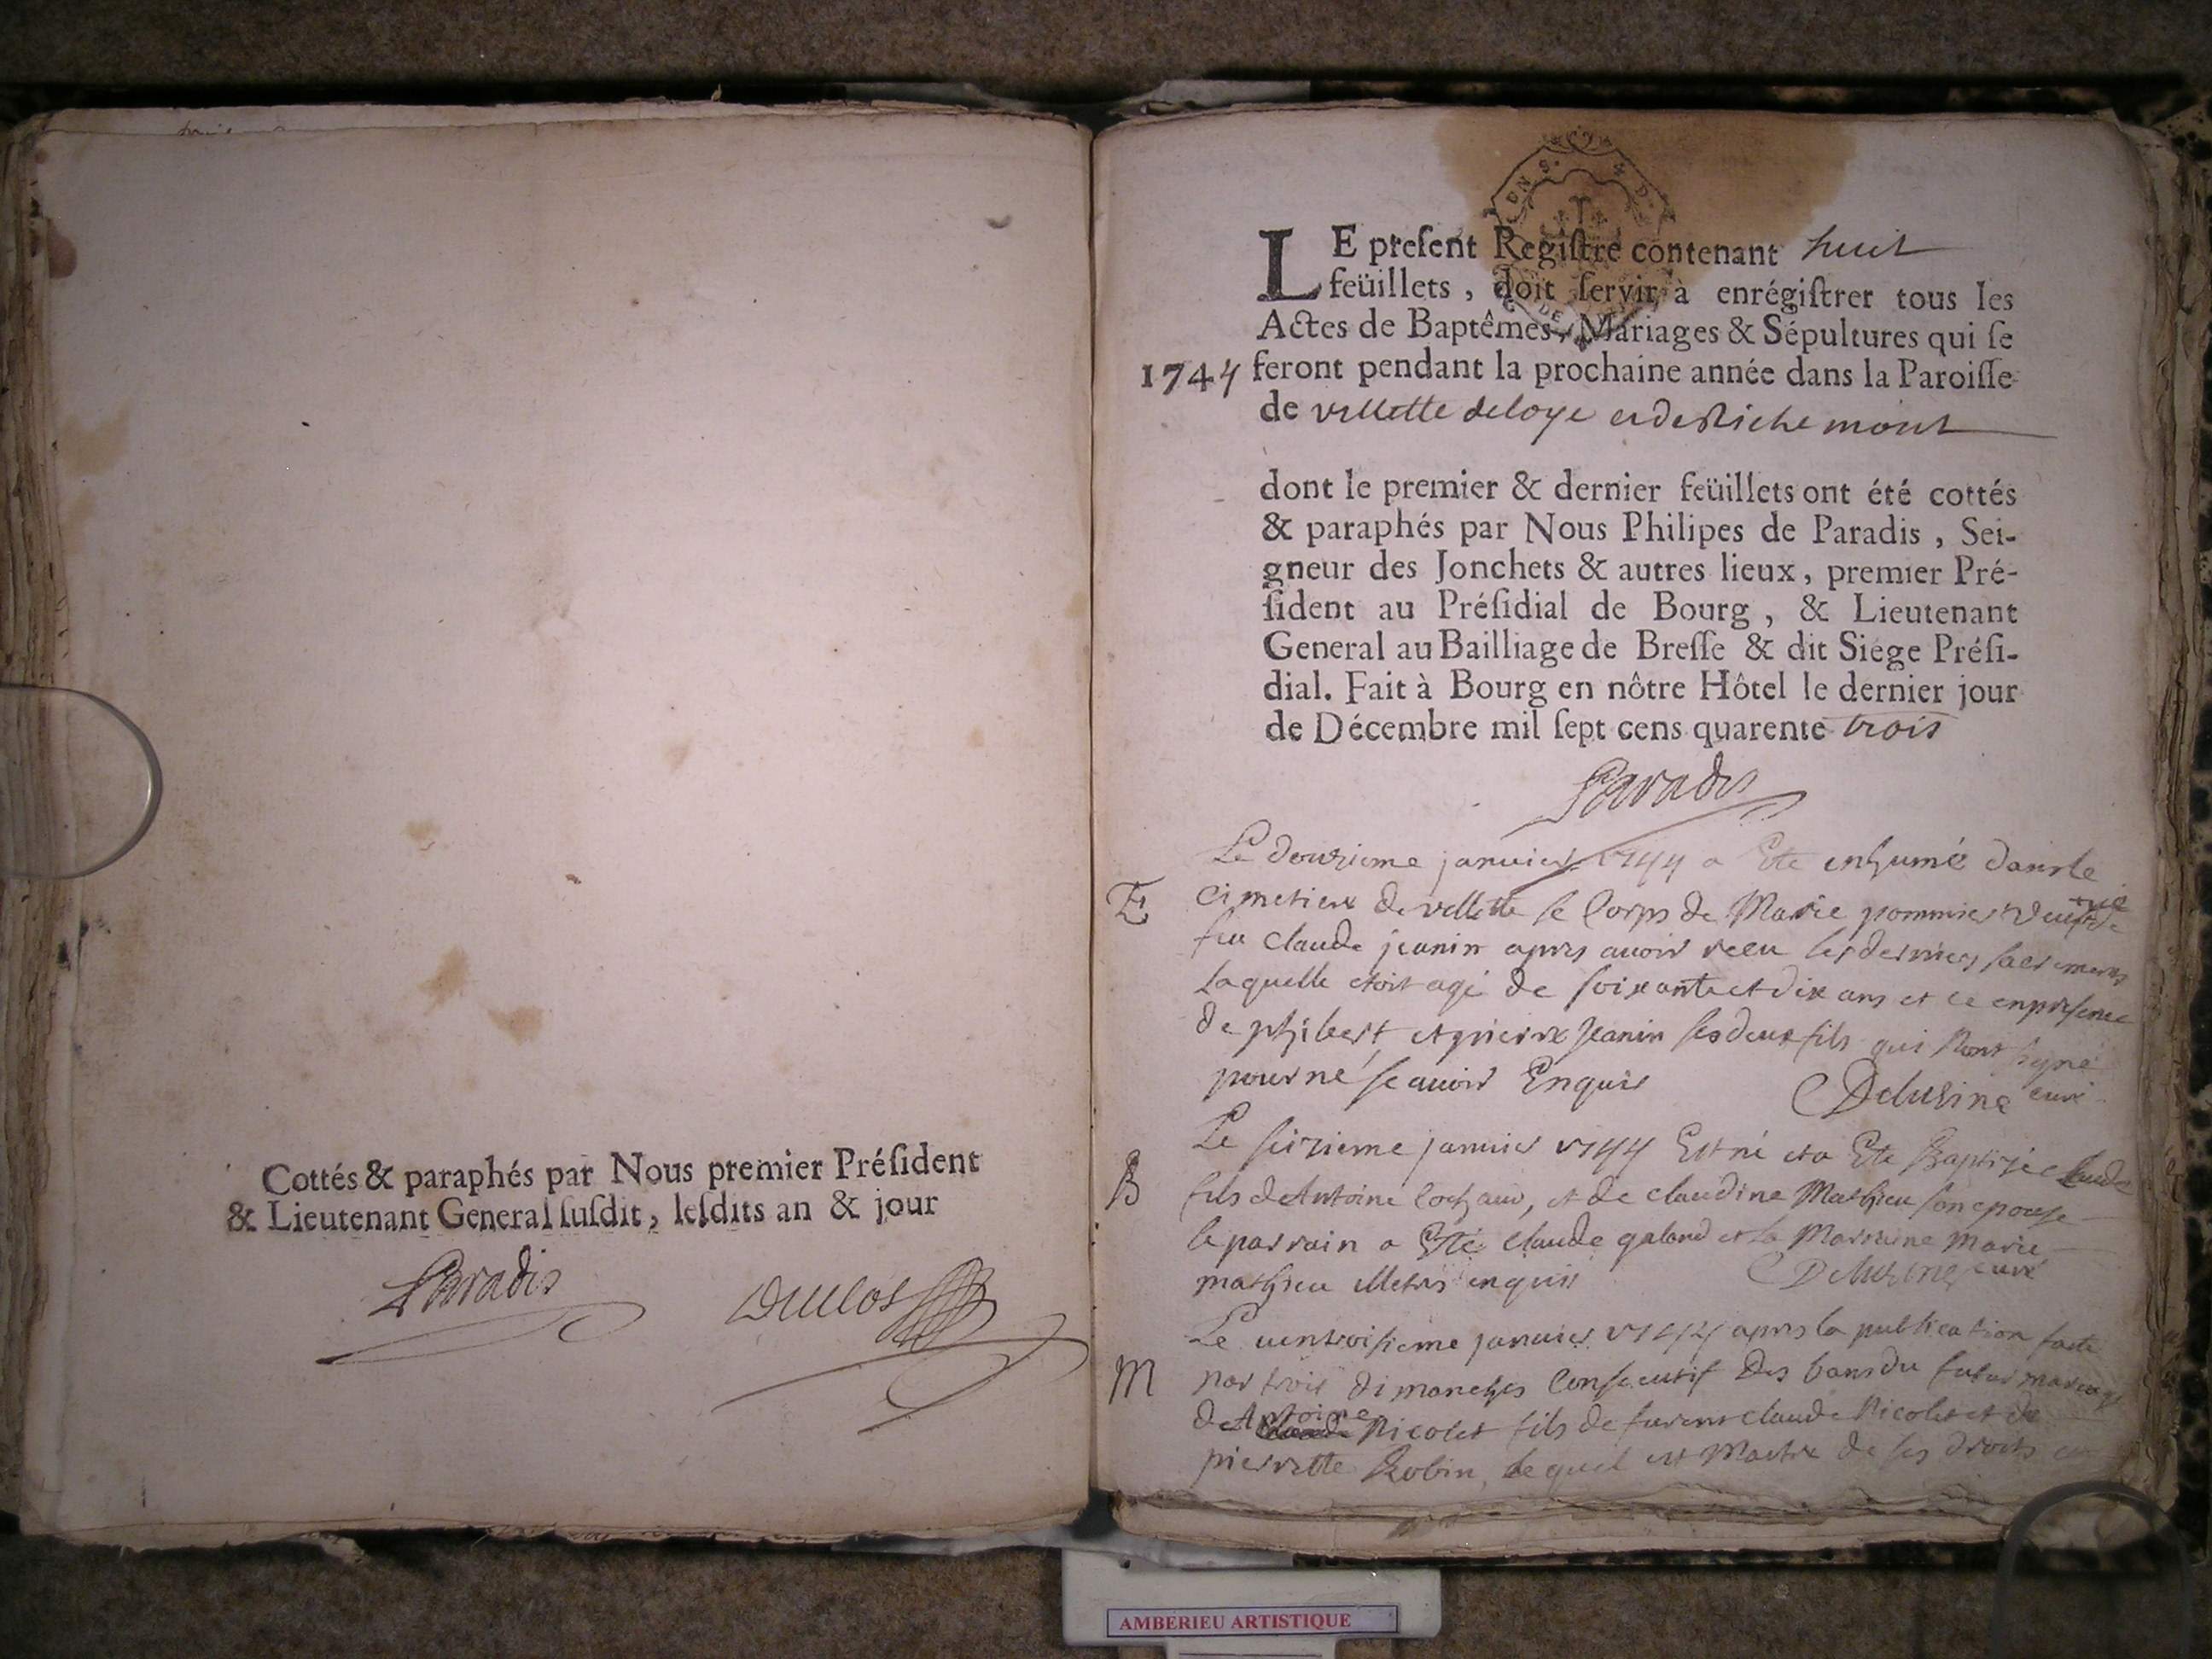 Cottés & paraphés par Nous premier Préſident
& Lieutenant General ſuſdit, leſdits an & jour
Paradis
Duclos
LE preſent Regiſtre contenant huit
feüillets, doit ſervir à enrégiſtrer tous les
Actes de Baptêmes, Mariages & Sépultures qui ſe
1744 feront pendant la prochaine année dans la Paroiſſe
de villette de loye et de Richemont
dont le premier & dernier feüillets ont été cottés
& paraphés par Nous Philipes de Paradis, Sei-
gneur des Jonchets & autres lieux, premier Pré-
ſident au Préſidial de Bourg, & Lieutenant
General au Bailliage de Breſſe & dit Siége Préſi-
dial. Fait à Bourg en nôtre Hôtel le dernier jour
de Décembre mil ſept cens quarente trois
Paradis
Le douzieme janvier 1744 a Ete enhumé dans le
E cimetiere de villette le Corps de Marie pommier veufve de
feu Claude jeanin apres avoir receu les derniers sacremens
laquelle etoit agé de soixante et dix ans et ce en presence
de philbert et pierre Jeanin ses deux fils qui n'ont signé
pour ne scavoir Enquis Deluzine curé
Le seizieme janvier 1744 Est né et a Ete Baptizé Claude
B fils de Antoine Cochaud, et de claudine Mathieu son epouse
le parrain a Eté Claude galand et la Marreine Marie
mathieu illetres enquis Deluzine curé
Le ventroisieme janvier 1744 apres la publication faite
M par trois dimanches Consecutif Des bans du futur mariage
de Antoine Nicolet fils de furent claude Nicolet et de
pierrette Robin, lequel est Maitre de ses droits
AMBERIEU ARTISTIQUE